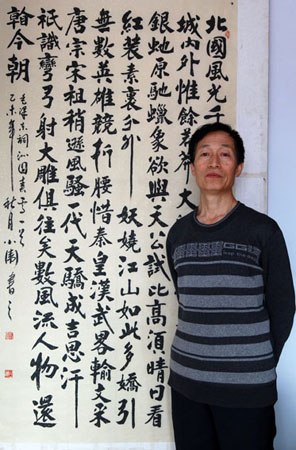 北國風光千
城内外惟餘莽莽大
銀虵原馳蠟象欲與天公試比高須晴日看
紅裝素裹分外妖嬈江山如此多嬌引
無數英雄競折腰惜秦皇漢武畧輸文采
唐宗宋祖稍遜風騷一代天驕成吉思汗
祇識彎弓射大雕俱往矣數風流人物還
今朝
毛澤東詞沁園春雪一首
乙未年秋月小園書之